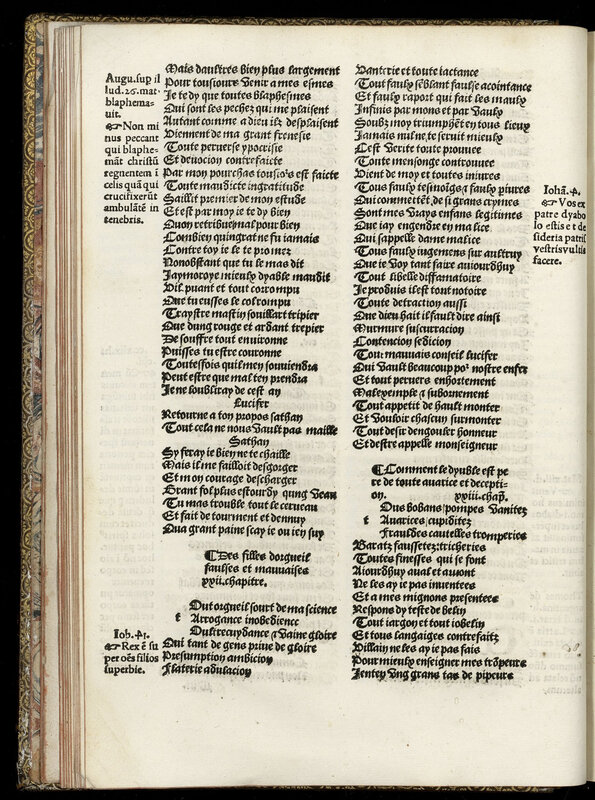 Augu. sup il
lud. 26. mat.
blaphema-
uit.
☞ Non mi
nus peccant
qui blaphe-
mãt christũ
regnentem ĩ
celis quã qui
crucifixerũt
ambulãtẽ in
tenebris.
Iob. 41.
☞ Rex ẽ su
per oẽs filios
superbie.
Mais daultres bien plus largement
Pour tousiours venir a mes esmes
Je te dy que toutes blasphesmes
Qui sont les pechez qui me plaisent
Autant comme a dieu ilz desplaisent
Viennent de ma grant frenesie
Toute peruerse ypocrisie
Et deuocion contrefaicte
Par mon pourchas tousiors est faicte
Toute mauldicte ingratitude
Saillit premier de mon estude
Et est par moy ie te dy bien
Quon retribue mal pour bien
Combien quingrat ne fu iamais
Contre toy ie le te prometz
Nonobstant que tu le mas dit
Jaymoroye mieulx dyable mauldit
Vil puant et tout corrompu
Que tu eusses le col rompu
Traystre mastin souillart tripier
Que dung rouge et ardant trepier
De souffre tout enuironne
Puisses tu estre couronne
Toutesfois quil men souuiendra
Peut estre que mal ten prendra
Je ne loubliray de cest an
Lucifer
Retourne a ton propos sathan
Tout cela ne nous vault pas maille
Sathan
Sy feray ie bien ne te chaille
Mais il me failloit desgorger
Et mon courage descharger
Grant fol plus estourdy qung veau
Tu mas trouble tout le cerueau
Et fait de tourment et dennuy
Qua grant paine scay ie ou ien suy
¶ Des filles dorgueil
faulses et mauuaises
xxii. chapitre.
Out orgueil sourt de ma science
t Arrogance inobedience
Oultrecuydance & vaine gloire
Qui tant de gens priue de gloire
Presumption ambicion
Flaterie adulacion
Vanterie et toute iactance
Tout faulx sẽblant faulse acointance
Et faulx raport qui fait les maulx
Infinis par mons et par vaulx
Soubz moy triumphẽt en tous lieux
Jamais nul ne te seruit mieulx
Cest verite toute prouuee
Toute mensonge controuuee
Vient de moy et toutes iniures
Tous faulx tesmoĩgs & faulx piures
Qui commettẽt de si grans crymes
Sont mes vrays enfans legitimes
Que iay engendre en malice
Qui sappelle dame malice
Tous faulx iugemens sur aultruy
Que ie voy tant faire auiourdhuy
Tout libelle diffamatoire
Je produis il est tout notoire
Toute detraction aussi
Que dieu hait il fault dire ainsi
Murmure susurracion
Contencion sedicion
Tout mauuais conseil lucifer
Qui vault beaucoup por nostre enfer
Et tout peruers enhortement
Mal exemple & subornement
Tout appetit de hault monter
Et vouloir chascun surmonter
Tout desir dengouler honneur
Et destre appelle monseigneur
¶ Comment le dyable est pe
re de toute auarice et decepti-
on. xxiii. chap̃.
Ous bobans pompes vanitez
t Auarices cupiditez
Fraudes cautelles tromperies
Baratz faussetez tricheries
Toutes finesses qui se font
Aiourdhuy aual et amont
Ne les ay ie pas inuentees
Et a mes mignons presentees
Respons dy teste de belin
Tout iargon et tout iobelin
Et tous langaiges contrefaitz
Villain ne les ay ie pas fais
Pour mieulx enseigner mes trõpeurs
Jentrẽy vng grans tas de pipeurs
Iohã. 4.
☞ Vos ex
patre dyabo
lo estis et de
sideria patris
vestris vultis
facere.